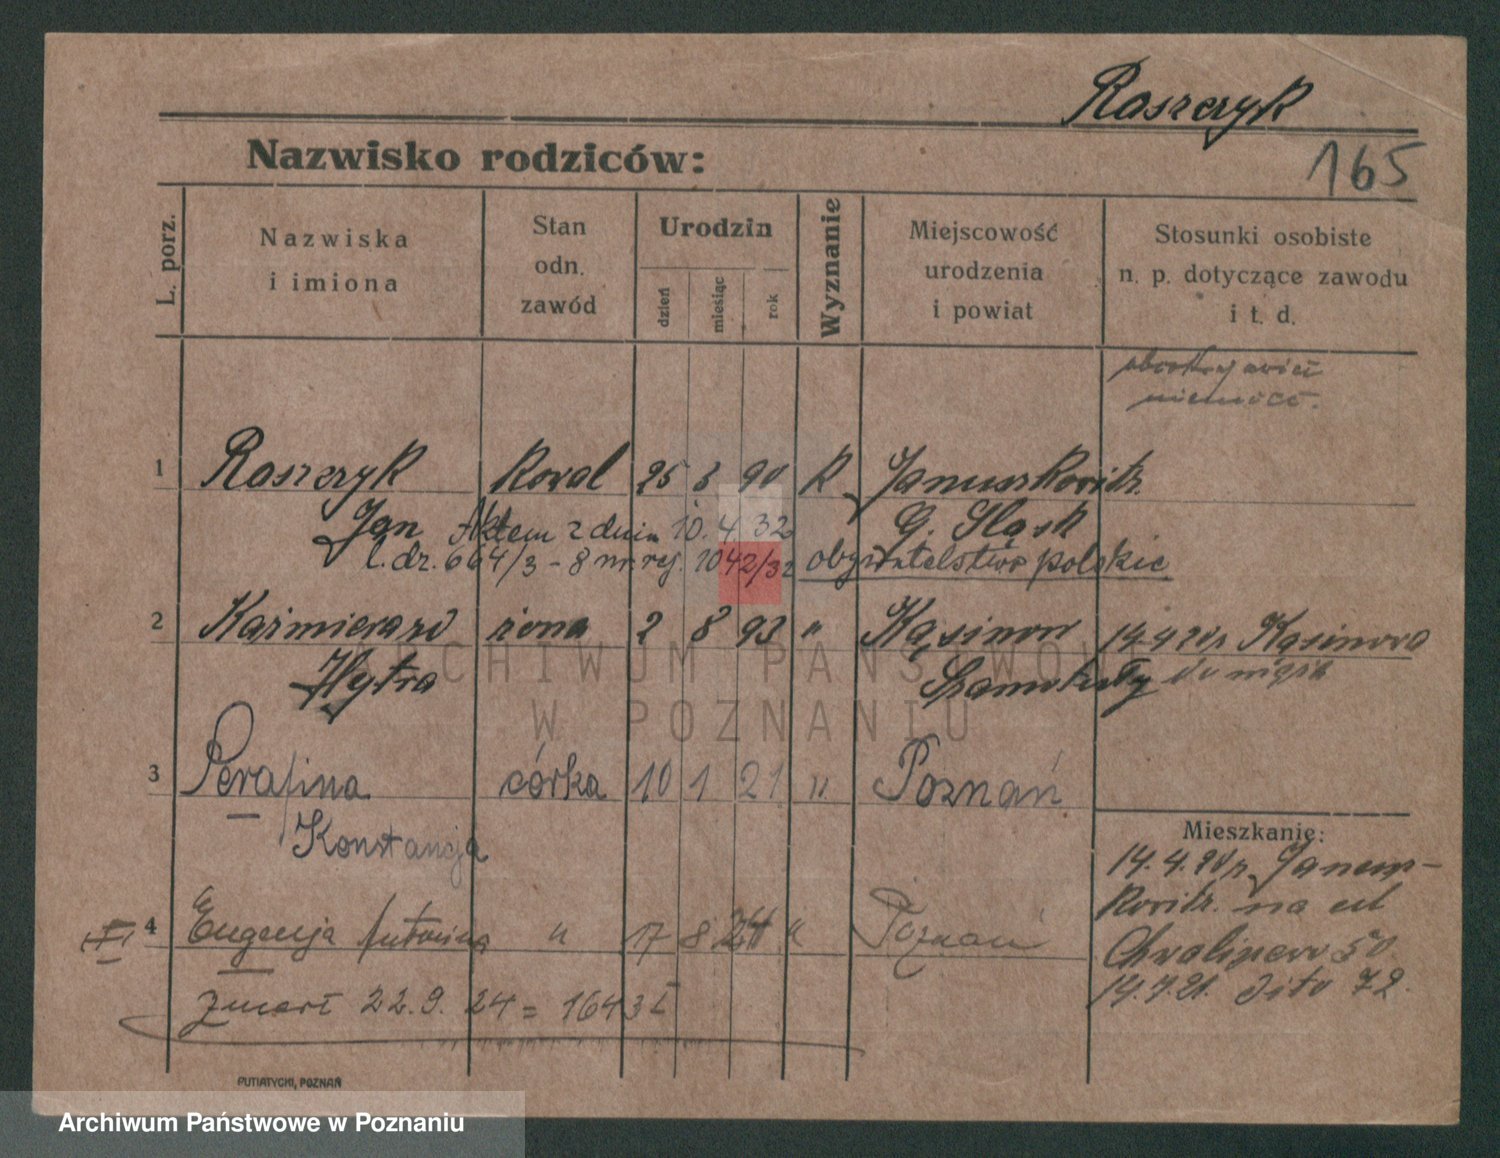 Raszczyk
165
Nazwisko rodziców:
L. porz.
Nazwiska
i imiona
Stan
odn.
zawód
Urodzin
dzień
miesiąc
rok
Wyznanie
Miejscowość
urodzenia
i powiat
Stosunki osobiste
n. p. dotyczące zawodu
i t. d.
1 Raszczyk Kowal 25 3 90 K Januszkowitz.
Jan Aktem z dnia 10. 4. 32 G. Śląsk
l. dz. 664/3 - 8 nr. rej. 1042/32 obywatelstwo polskie
2 Kaźmiera żona 2 8 93 " Kąsinow 14.4.20 r Kąsinowa
Hytra Szamotuły
3 Serafina córka 10 1 21 " Poznań
Konstancja
4 Eugenja Antonina " 17 8 24 " Poznań
zmarł 22.9.24 = 1643
Mieszkanie:
14.4.20 r. Janusz-
Kowitz. na ul
Chwaliszewo 50
14.7.21. dito 72.
PUTIATYCKI, POZNAŃ
ARCHIWUM PAŃSTWOWE
W POZNANIU
Archiwum Państwowe w Poznaniu